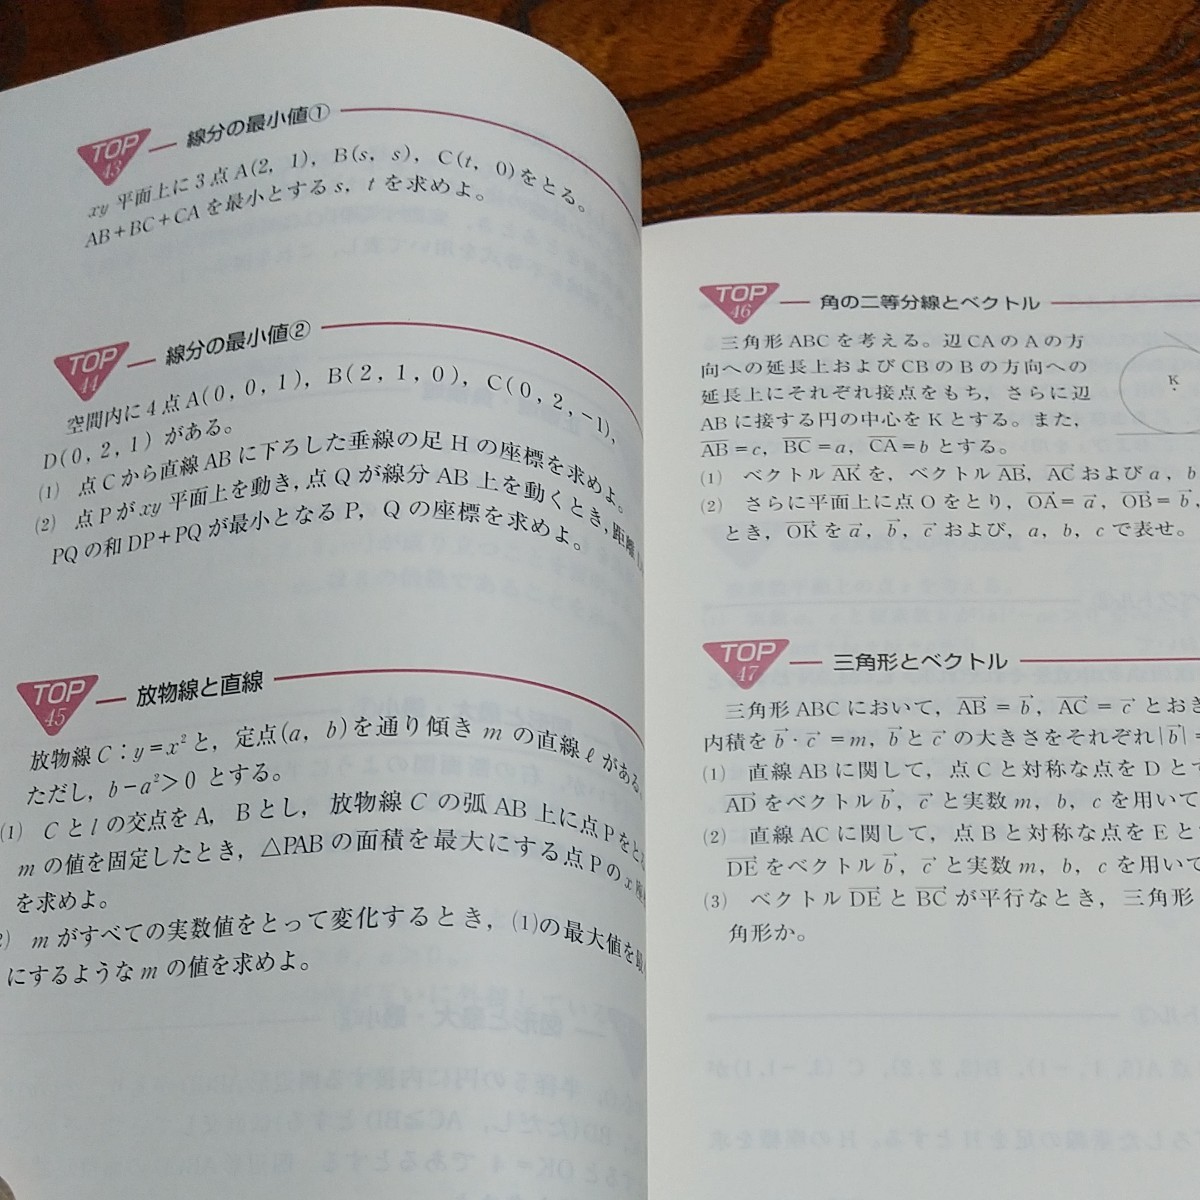 TOP 43 線分の最小値①
xy 平面上に 3 点 A(2, 1), B(s, s), C(t, 0)をとる。
AB+BC+CA を最小とする s, t を求めよ。
TOP 44 線分の最小値②
空間内に 4 点 A(0, 0, 1), B(2, 1, 0), C(0, 2, −1),
D(0, 2, 1) がある。
(1) 点 C から直線 AB に下ろした垂線の足 H の座標を求めよ。
(2) 点 P が xy 平面上を動き, 点 Q が線分 AB 上を動くとき, 距離
PQ の和 DP+PQ が最小となる P, Q の座標を求めよ。
TOP 45 放物線と直線
放物線 C : y=x² と, 定点(a, b)を通り傾き m の直線 ℓ がある。
ただし, b−a²>0 とする。
(1) C と l の交点を A, B とし, 放物線 C の弧 AB 上に点 P をと
m の値を固定したとき, △PAB の面積を最大にする点 P の x
を求めよ。
2) m がすべての実数値をとって変化するとき, (1)の最大値を
にするような m の値を求めよ。
TOP 46 角の二等分線とベクトル
三角形 ABC を考える。辺 CA の A の方
向への延長上および CB の B の方向への
延長上にそれぞれ接点をもち, さらに辺
AB に接する円の中心を K とする。また,
A͞B͞=c, B͞C͞=a, C͞A͞=b とする。
K
(1) ベクトル AK→ を, ベクトル AB→, AC→ および a, b
(2) さらに平面上に点 O をとり, OA→=a→, OB→=b→,
とき, OK→ を a→, b→, c→ および, a, b, c で表せ。
TOP 47 三角形とベクトル
三角形 ABC において, AB→ = b→, AC→ = c→ とおき
内積を b→・c→=m, b→ と c→ の大きさをそれぞれ|b→|=
(1) 直線 AB に関して, 点 C と対称な点を D とす
AD→ をベクトル b→, c→ と実数 m, b, c を用いて
(2) 直線 AC に関して, 点 B と対称な点を E と
DE→ をベクトル b→, c→ と実数 m, b, c を用いて
(3) ベクトル DE→ と BC→ が平行なとき, 三角形
角形か。